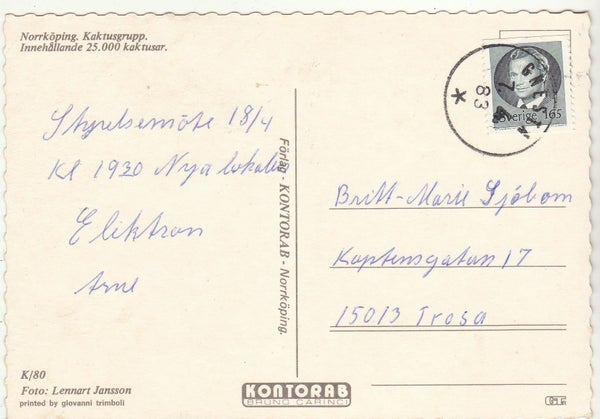 Norrköping. Kaktusgrupp.
Innehållande 25.000 kaktusar.
Sverige 165
83
Styrelsemöte 18/4
Kl 1930 Nya lokalen
Elektron
Arne
Förlag - KONTORAB - Norrköping.
Britt-Marie Sjöbom
Kaptensgatan 17
15013 Trosa
K/80
Foto: Lennart Jansson
printed by giovanni trimboli
KONTORAB
BRUNO CARINCI